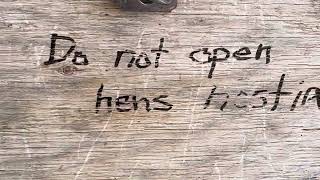 Do not open
hens nestin